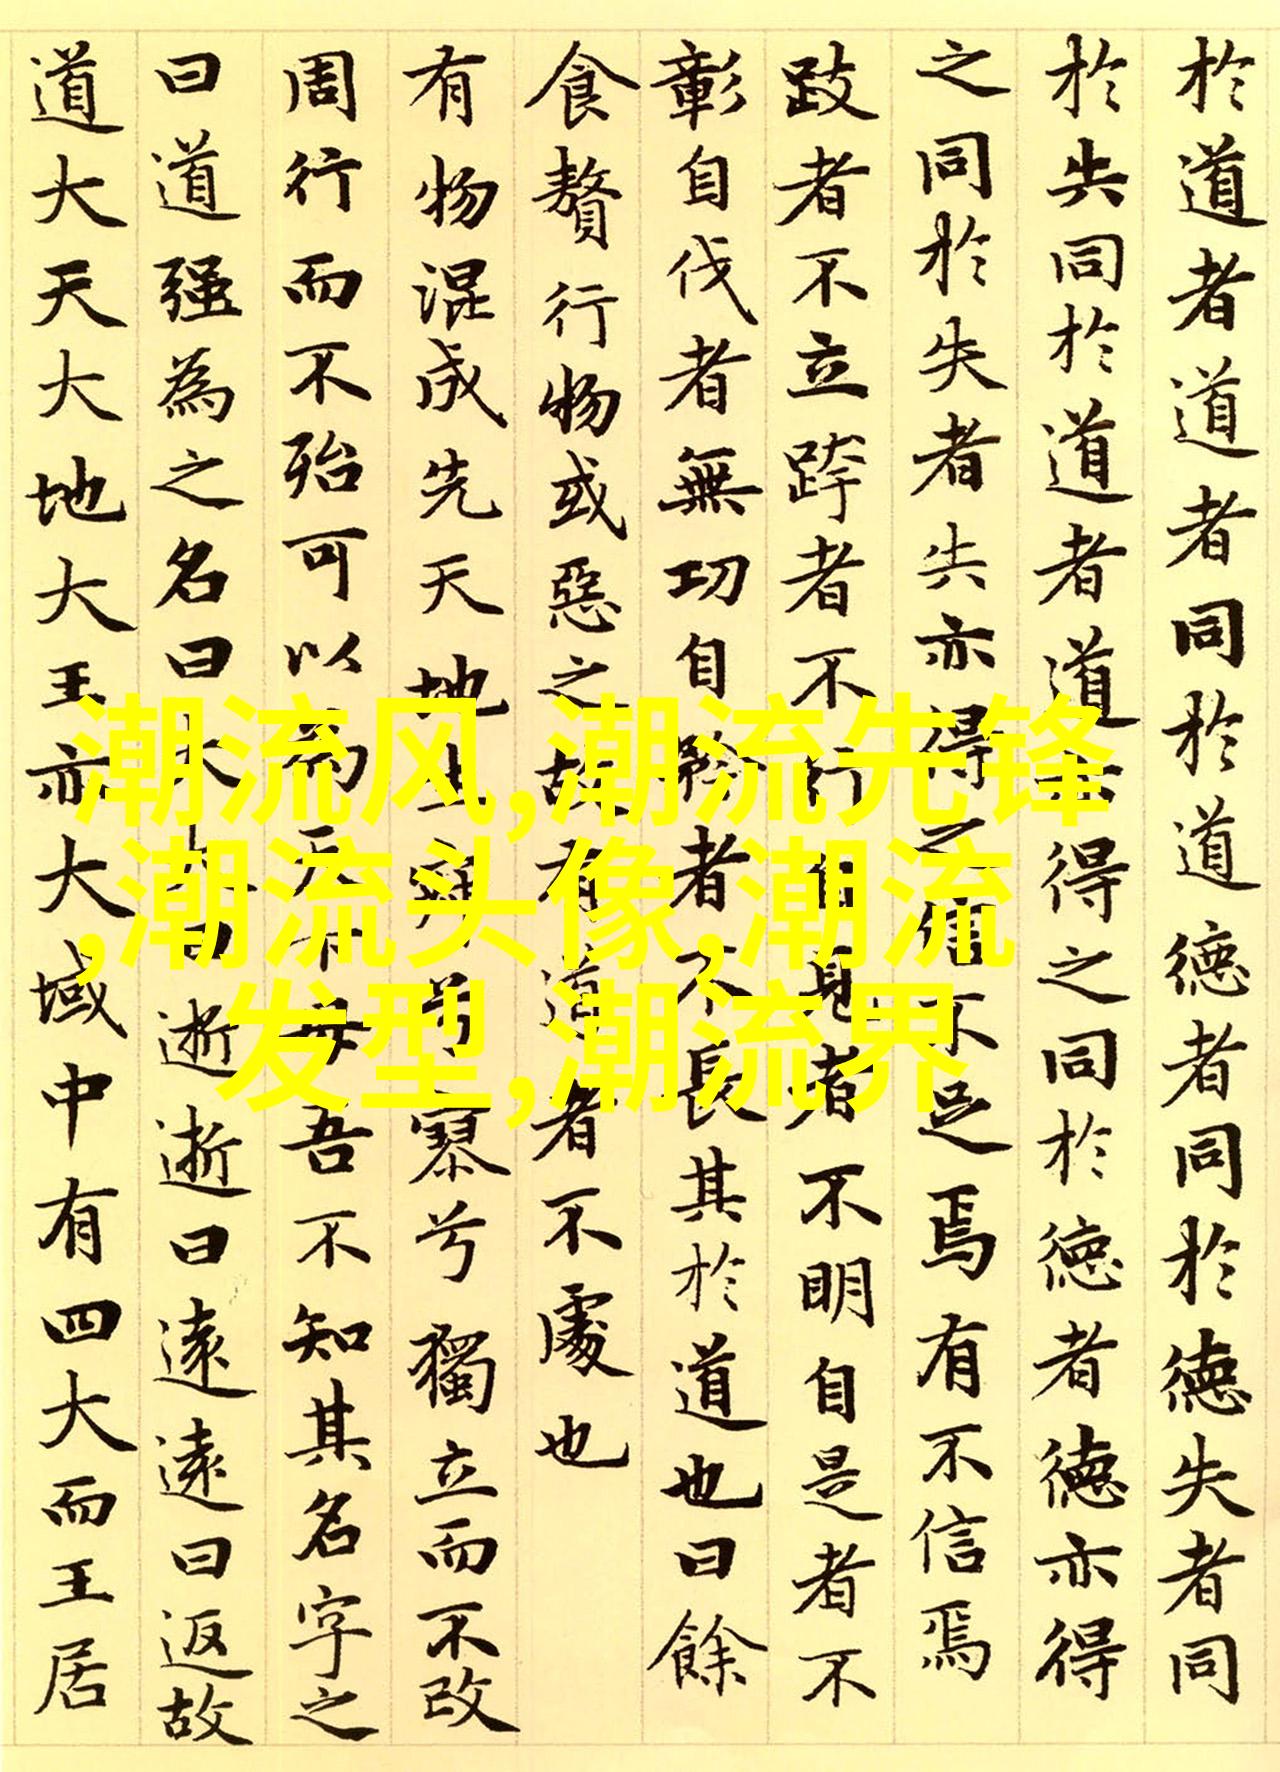 於道者道者同於道德者同於德失者同
於失同於道者道亦得之同於德者德亦得
之同於失者失亦得之信不足焉有不信焉
跂者不立跨者不行自見者不明自是者不
彰自伐者無功自矜者不長其於道也曰餘
食贅行物或惡之故有道者不處也
有物混成先天地生寂兮寥兮獨立而不改
周行而不殆可以為天下母吾不知其名字之
曰道强為之名曰大大曰逝逝曰遠遠曰返故
道大天大地大王亦大域中有四大而王居
潮流风,潮流先锋
,潮流头像,潮流
发型,潮流界